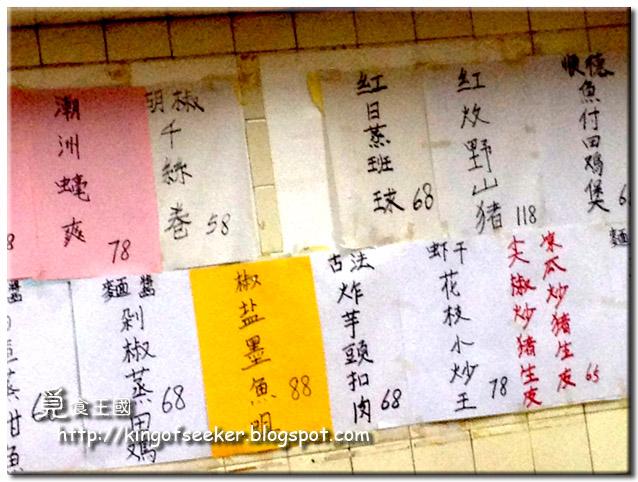 潮洲蠔爽
78
胡椒
千絲卷
58
紅日蒸班球
68
紅炆野山猪
118
魚付田鸡煲
麵醬
剁椒蒸田鸡
68
椒盐墨魚
88
古法
炸芋頭扣肉
68
虾干
花枝小炒王
78
凉瓜炒猪生皮
尖椒炒猪生皮
65
覓食王國
http://kingofseeker.blogspot.com